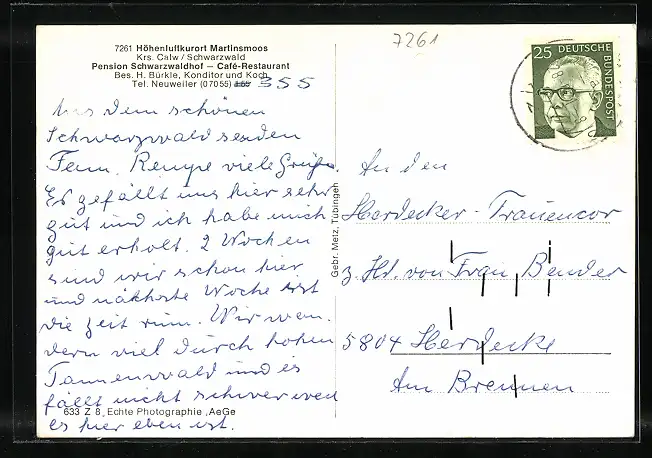 7261 Höhenluftkurort Martinsmoos
Krs. Calw / Schwarzwald
Pension Schwarzwaldhof – Café-Restaurant
Bes. H. Bürkle, Konditor und Koch
Tel. Neuweiler (07055) 355
7261
25 DEUTSCHE
BUNDESPOST
Aus dem schönen
Schwarzwald senden
Fam. Rempe viele Grüße.
Es gefällt uns hier sehr
gut und ich habe mich
gut erholt. 2 Wochen
sind wir schon hier
und nächste Woche ist
die Zeit rum. Wir wan-
dern viel durch hohen
Tannenwald und es
fällt nicht schwer weil
es hier eben ist.
633 Z 8 Echte Photographie „AeGe
Gebr. Metz, Tübingen
An den
Herdecker-Frauencor
z. Hd. von Frau Bender
5804 Herdecke
Am Brennen